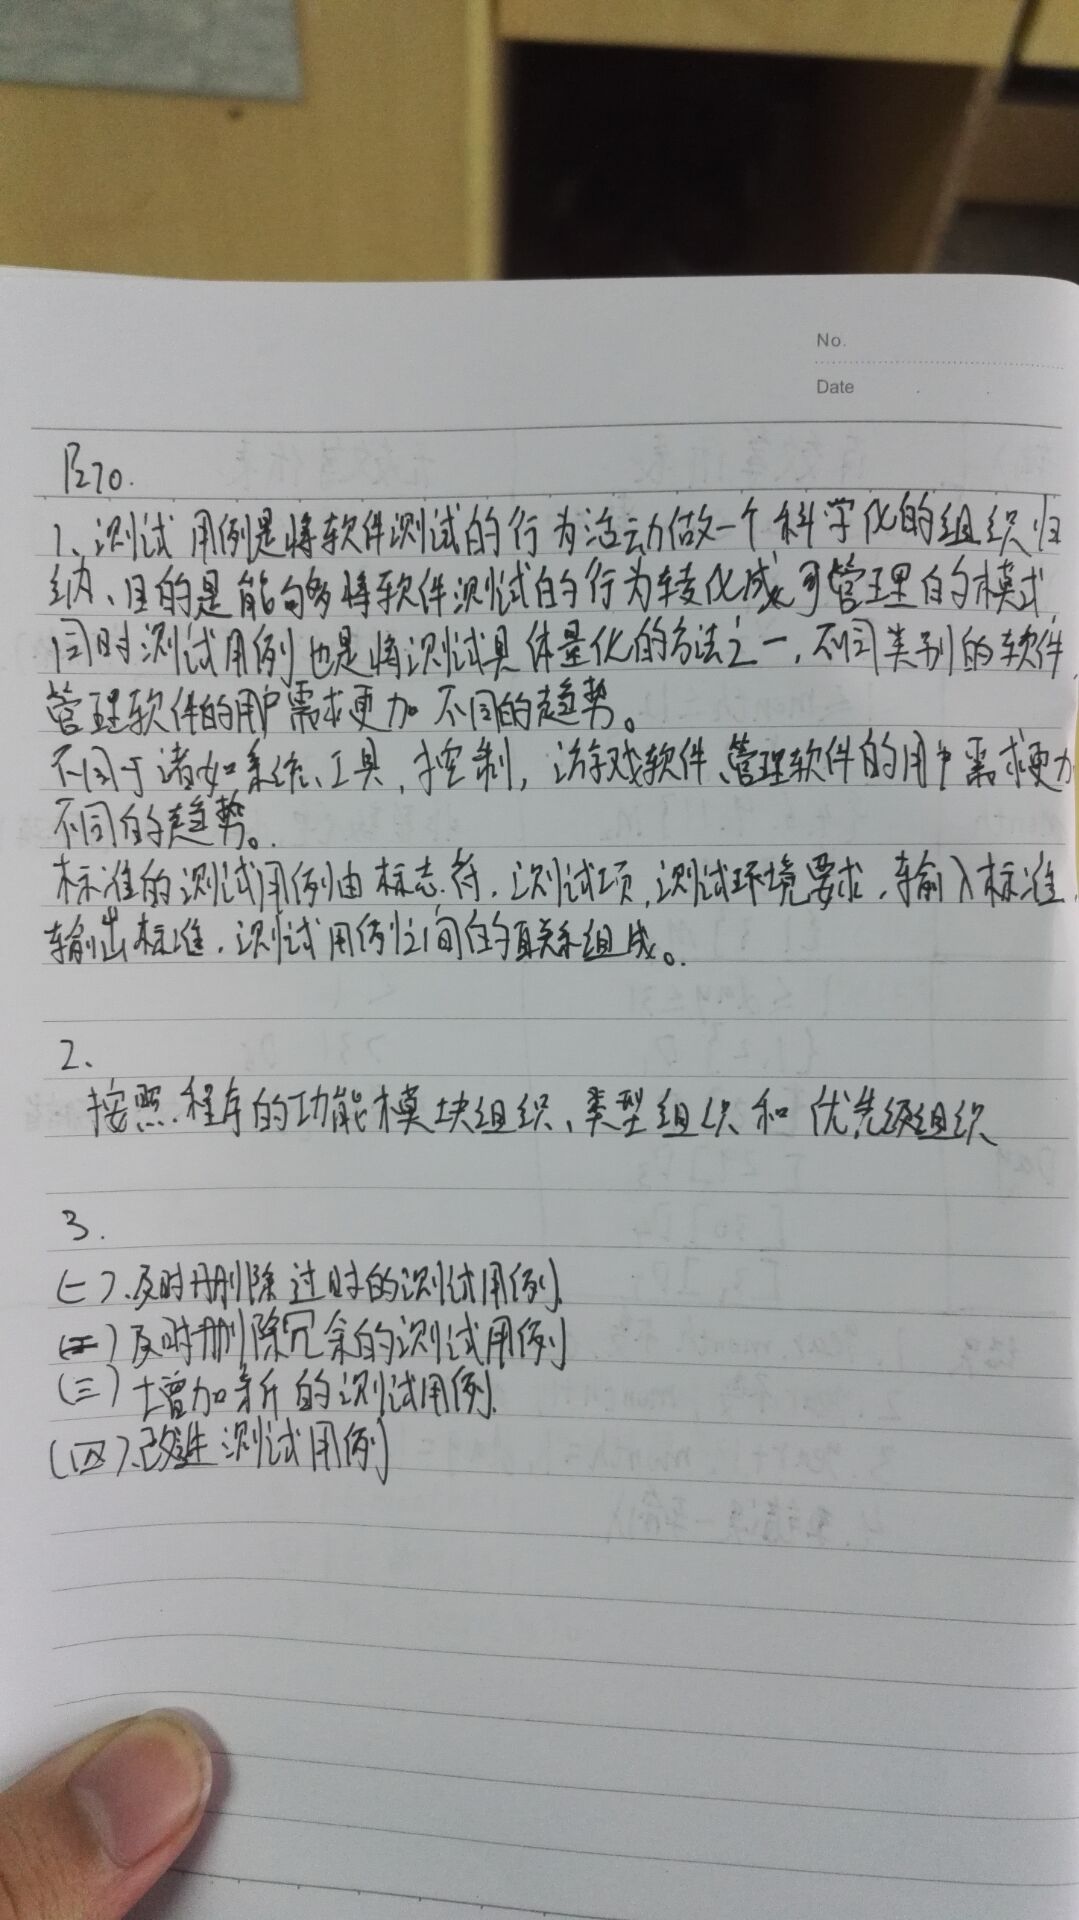 No.
Date
P270.
1、测试用例是将软件测试的行为活动做一个科学化的组织归
纳、目的是能够将软件测试的行为转化成可管理的模式
同时测试用例也是将测试具体量化的方法之一，不同类别的软件，
管理软件的用户需求更加不同的趋势。
不同于诸如系统、工具，控制，游戏软件、管理软件的用户需求更加
不同的趋势。
标准的测试用例由标志符，测试项，测试环境要求，输入标准，
输出标准，测试用例之间的关系组成。
2、
按照程序的功能模块组织、类型组织和优先级组织
3.
(一)、及时删除过时的测试用例
(二)及时删除冗余的测试用例
(三)增加新的测试用例
(四)、改进测试用例